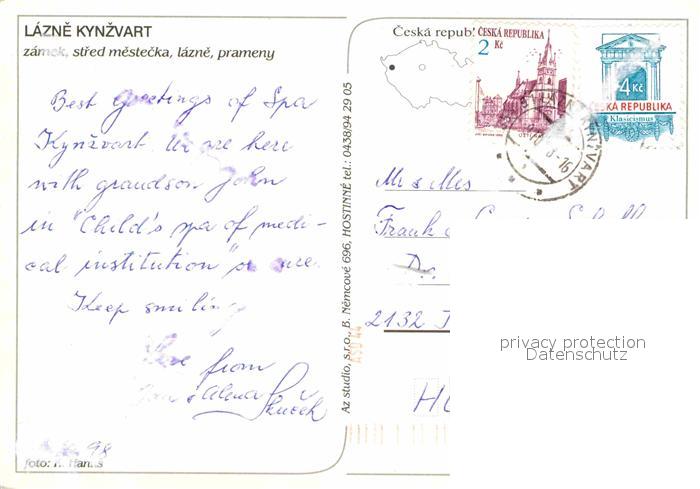 LÁZNĚ KYNŽVART
zámek, střed městečka, lázně, prameny
Best Greetings of Spa
Kynžvart. We are here
with grandson John
in "Child's spa of medi-
cal institution"
Keep smiling
Love from
& Alena
98
foto:
Az studio, s.r.o., B. Němcové 696, HOSTINNÉ tel.: 0438/94 29 05
Česká republ
2 Kč
ČESKÁ REPUBLIKA
4 Kč
ČESKÁ REPUBLIKA
Klasicismus
KYNŽVART
Mr & Mrs
Frank
Dr.
2132
privacy protection
Datenschutz